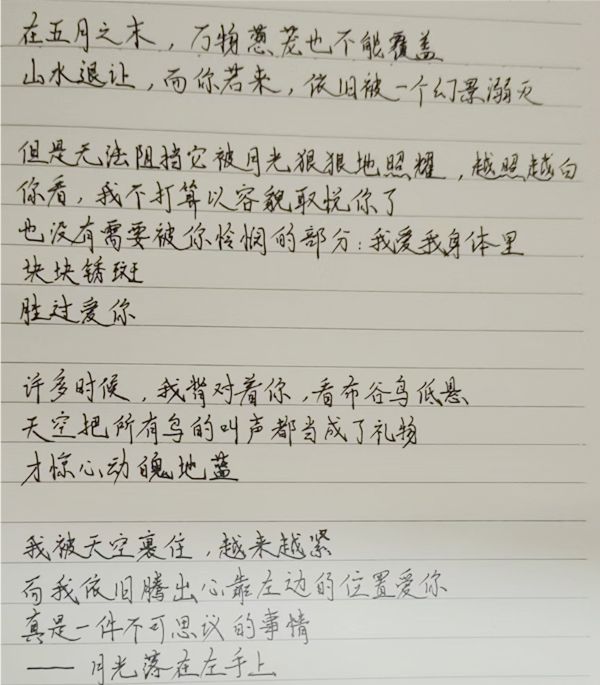 在五月之末，万物葱茏也不能覆盖
山水退让，而你若来，依旧被一个幻景溺灭
但是无法阻挡它被月光狠狠地照耀，越照越白
你看，我不打算以容貌取悦你了
也没有需要被你怜悯的部分：我爱我身体里
块块锈斑
胜过爱你
许多时候，我背对着你，看布谷鸟低悬
天空把所有鸟的叫声都当成了礼物
才惊心动魄地蓝
我被天空裹住，越来越紧
而我依旧腾出心靠左边的位置爱你
真是一件不可思议的事情
——月光落在左手上